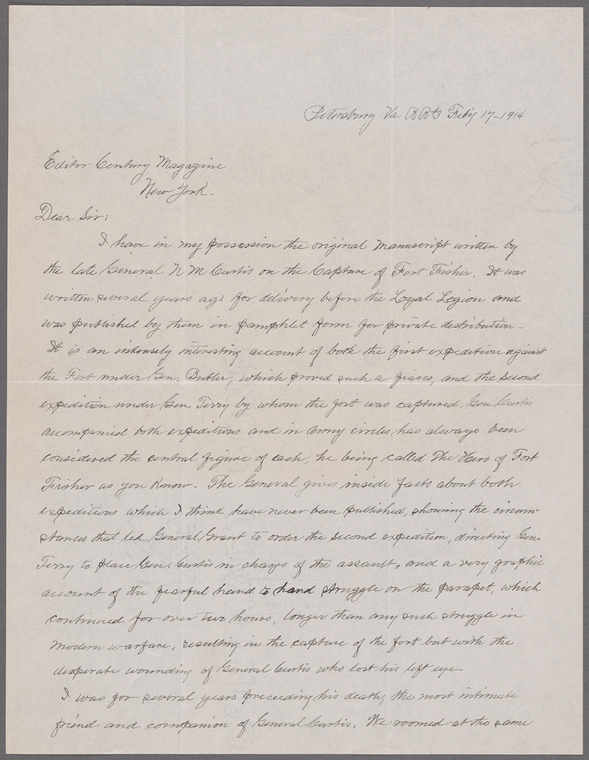 Petersburg Va RR#3 Feb'y 17-1914
Editor Century Magazine
New York-
Dear Sir:
I have in my possession the original manuscript written by
the late General N M Curtis on the Capture of Fort Fisher. It was
written several years ago for delivery before the Loyal Legion and
was published by them in pamphlet form for private distribution-
It is an intensely interesting account of both the first expedition against
the Fort under Gen. Butler, which proved such a fiasco, and the second
expedition under Gen. Terry by whom the fort was captured. Gen Curtis
accompanied both expeditions and in Army circles, has always been
considered the central figure of each, he being called The Hero of Fort
Fisher as you know. The General gives inside facts about both
expeditions which I think have never been published, showing the circum-
stances that led General Grant to order the second expedition, directing Gen.
Terry to place Gen Curtis in charge of the assault, and a very graphic
account of the fearful hand to hand struggle on the parapet, which
continued for over two hours, longer than any such struggle in
modern warfare, resulting in the capture of the fort but with the
desperate wounding of General Curtis who lost his left eye-
I was for several years preceeding his death, the most intimate
friend and companion of General Curtis. We roomed at the same